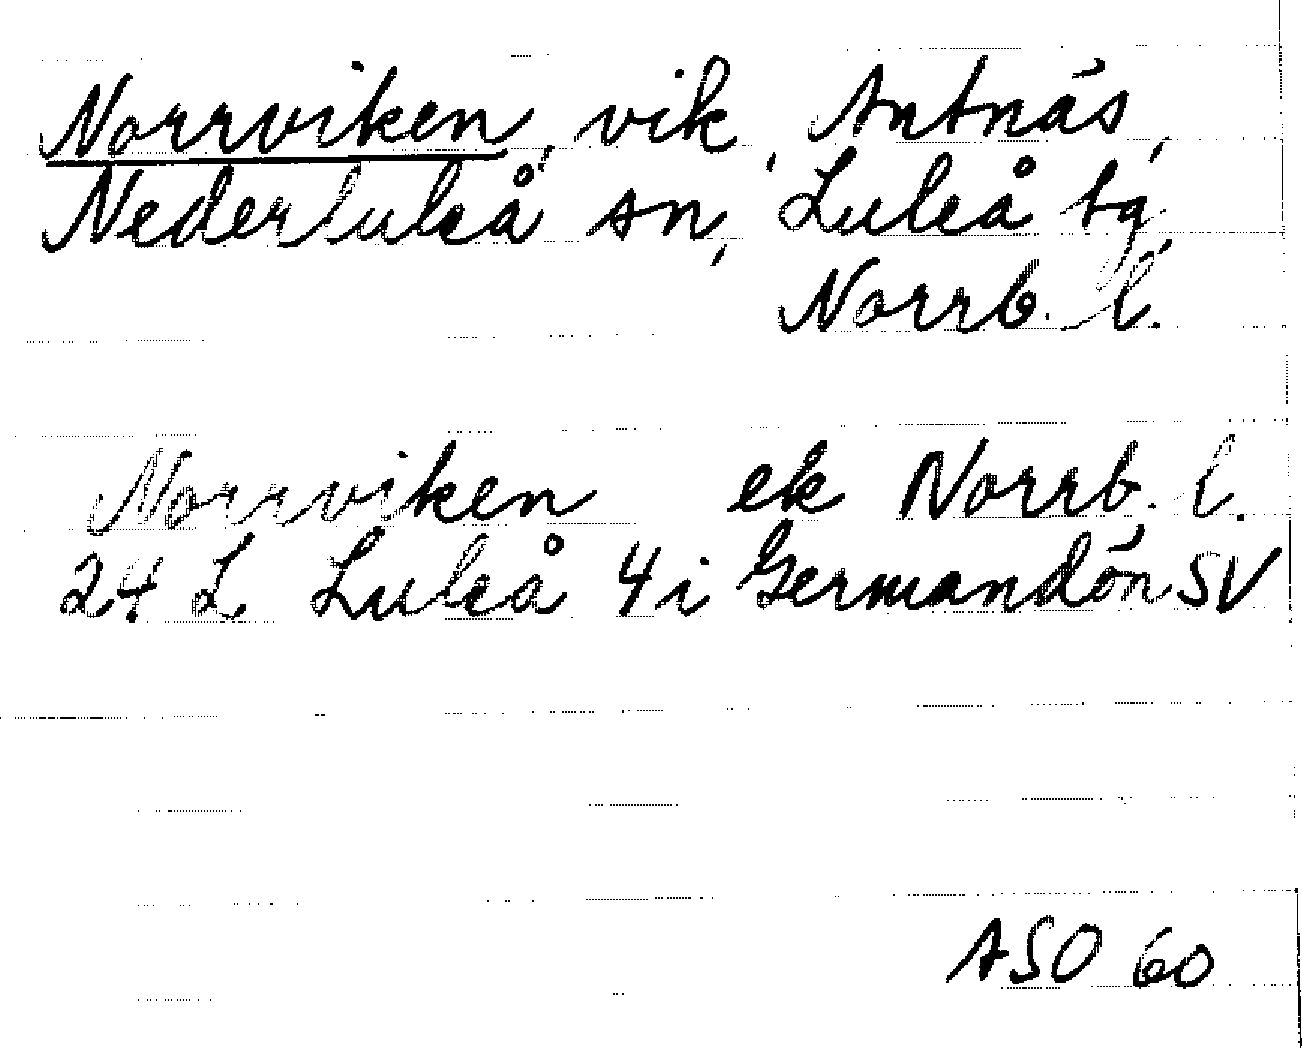 Norrviken, vik, Antnäs,
Nederluleå sn, Luleå tg,
Norrb. l.
Norrviken ek Norrb. l.
24 L Luleå 4i Germandön SV
ASO 60